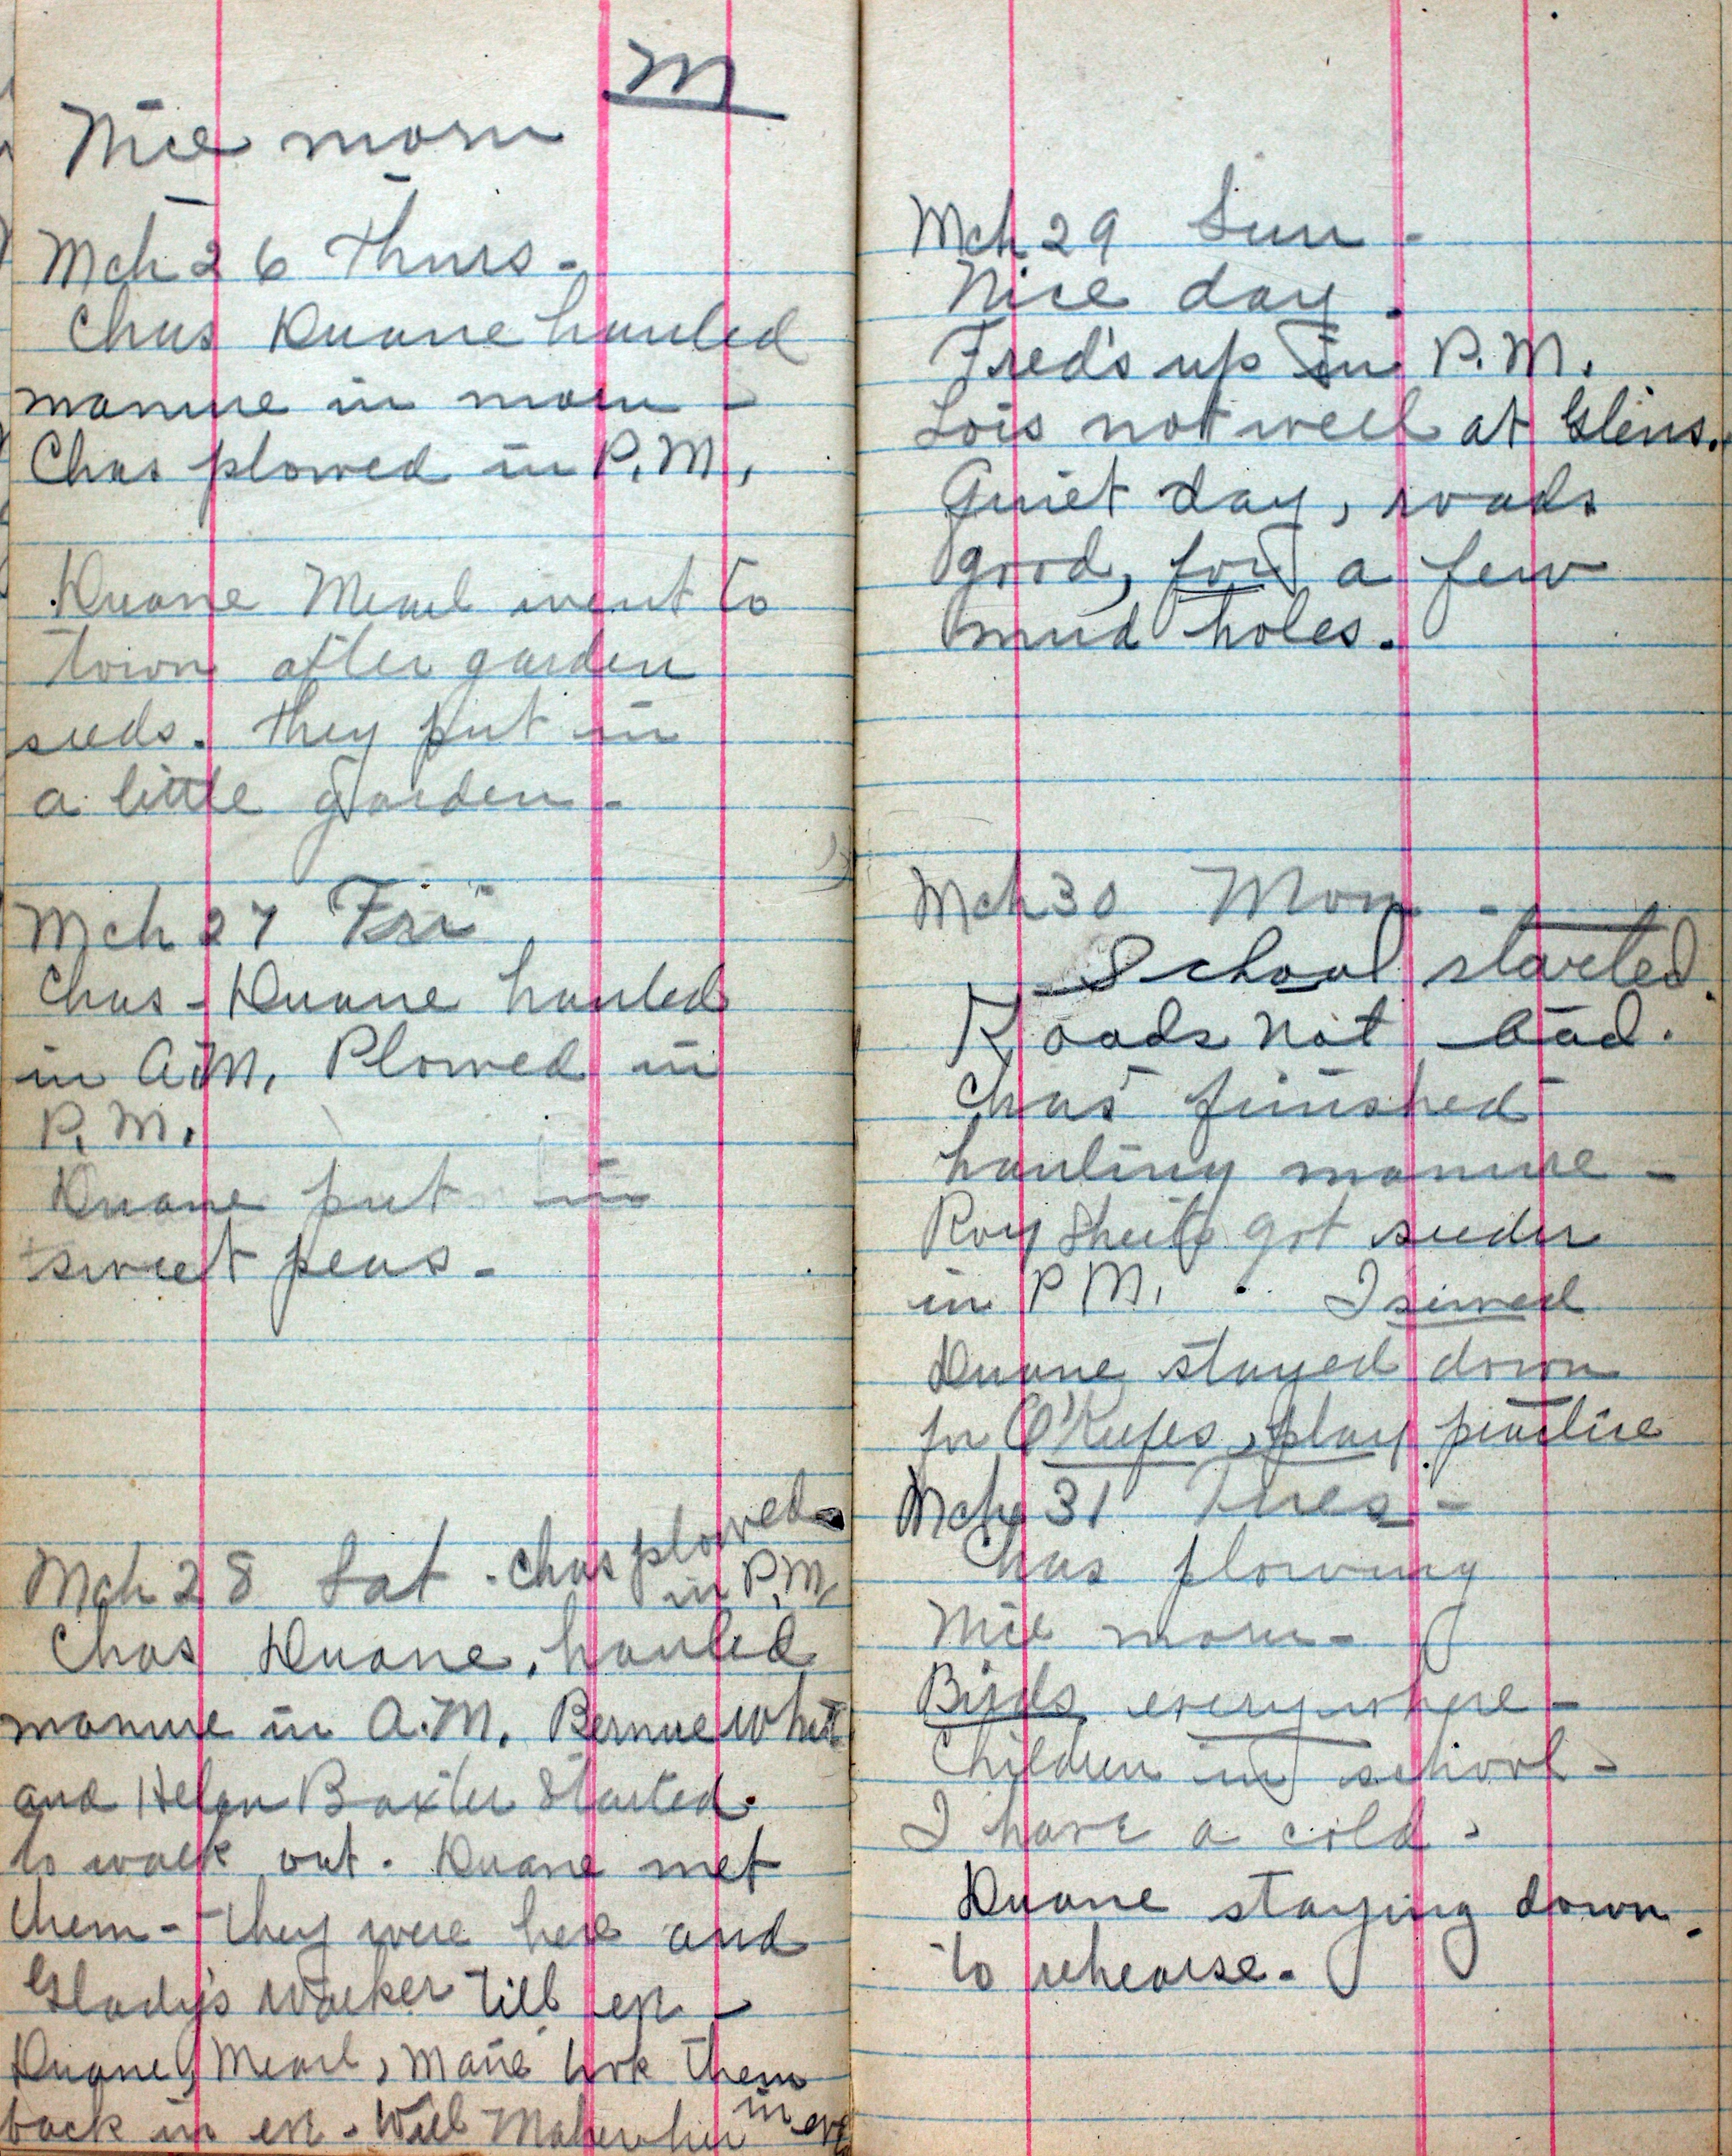 M
Nice morn
Mch 26 Thurs -
Chas Duane hauled
manure in morn -
Chas plowed in P.M.
Duane Mearl went to
town after garden
seeds. They put in
a little garden -
Mch 27 Fri
Chas - Duane hauled
in A.M. Plowed in
P.M.
Duane put in
sweet peas -
Mch 28 Sat - Chas plowed
in P.M.
Chas Duane, hauled
manure in A.M. Bernice
and Helen Baxter started
to walk out. Duane met
them - they were here and
Gladys Walker till eve -
Duane, Mearl, Marie took them
back in eve - Will Maher in eve
Mch 29 Sun -
Nice day.
Fred's up in P.M.
Lois not well at Glens.
Quiet day, roads
good, for a few
mud holes.
Mch 30 Mon -
School started
Roads not bad.
Chas finished
hauling manure -
Roy got seeder
in P.M. I sewed
Duane stayed down
for O'Keefes, play practice
Mch 31 Tues -
Chas plowing
Nice morn -
Birds everywhere -
Children in school -
I have a cold -
Duane staying down
to rehearse.